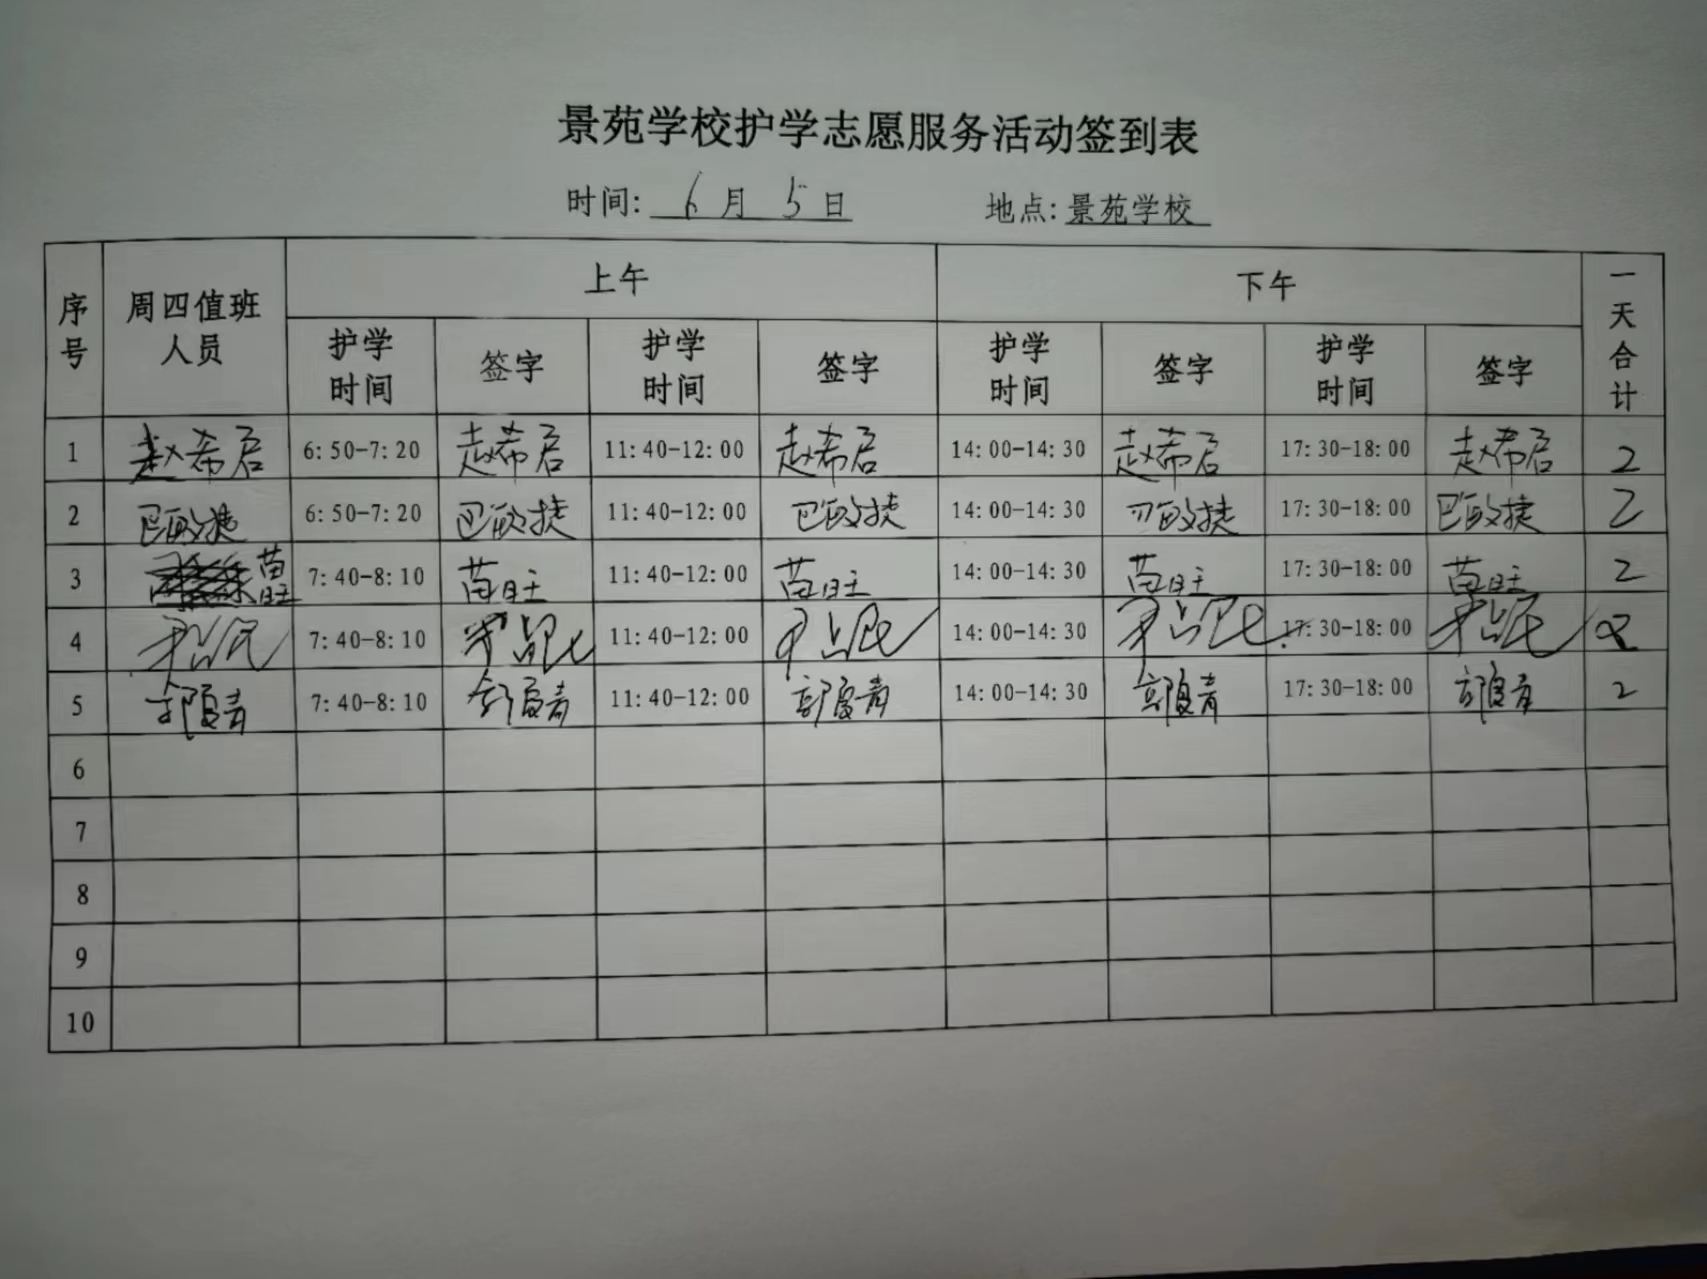 景苑学校护学志愿服务活动签到表
时间: 6月 5日 地点: 景苑学校
序号 周四值班人员 上午 下午 一天合计
护学时间 签字 护学时间 签字 护学时间 签字 护学时间 签字
1 赵希启 6:50-7:20 赵希启 11:40-12:00 赵希启 14:00-14:30 赵希启 17:30-18:00 赵希启 2
2 巴敏捷 6:50-7:20 巴敏捷 11:40-12:00 巴敏捷 14:00-14:30 巴敏捷 17:30-18:00 巴敏捷 2
3 苗旺 7:40-8:10 苗旺 11:40-12:00 苗旺 14:00-14:30 苗旺 17:30-18:00 苗旺 2
4 7:40-8:10 11:40-12:00 14:00-14:30 17:30-18:00 2
5 郭夏青 7:40-8:10 郭夏青 11:40-12:00 郭夏青 14:00-14:30 郭夏青 17:30-18:00 郭夏青 2
6
7
8
9
10